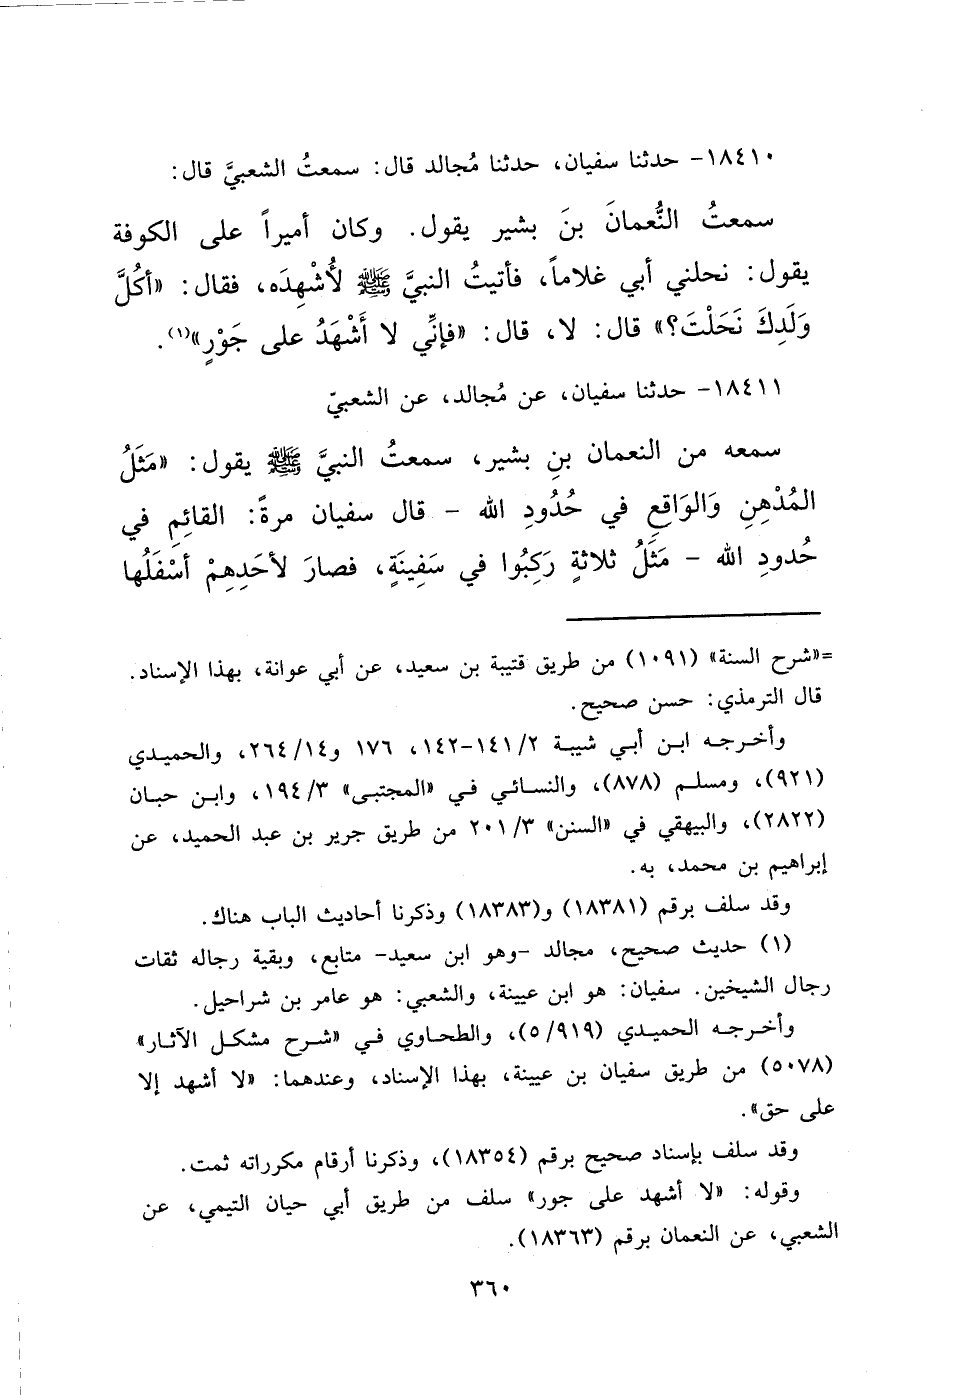 ١٨٤١٠- حدثنا سفيان، حدثنا مُجالد قال: سمعتُ الشعبيَّ قال:
سمعتُ النُّعمانَ بنَ بشير يقول. وكان أميراً على الكوفة
يقول: نحلني أبي غلاماً، فأتيتُ النبيَّ ﷺ لأُشْهِدَه، فقال: «أكُلَّ
وَلَدِكَ نَحَلْتَ؟» قال: لا، قال: «فإنِّي لا أَشْهَدُ على جَوْرٍ»(١).
١٨٤١١- حدثنا سفيان، عن مُجالد، عن الشعبيّ
سمعه من النعمان بنِ بشير، سمعتُ النبيَّ ﷺ يقول: «مَثَلُ
المُدْهِنِ وَالوَاقِعِ في حُدُودِ الله - قال سفيان مرةً: القائِمِ في
حُدودِ الله - مَثَلُ ثلاثةٍ رَكِبُوا في سَفِينَةٍ، فصارَ لأحَدِهِمْ أسْفَلُها
=«شرح السنة» (١٠٩١) من طريق قتيبة بن سعيد، عن أبي عوانة، بهذا الإسناد.
قال الترمذي: حسن صحيح.
وأخرجه ابن أبي شيبة ١٤١/٢-١٤٢، ١٧٦ و٢٦٤/١٤، والحميدي
(٩٢١)، ومسلم (٨٧٨)، والنسائي في «المجتبى» ١٩٤/٣، وابن حبان
(٢٨٢٢)، والبيهقي في «السنن» ٢٠١/٣ من طريق جرير بن عبد الحميد، عن
إبراهيم بن محمد، به.
وقد سلف برقم (١٨٣٨١) و(١٨٣٨٣) وذكرنا أحاديث الباب هناك.
(١) حديث صحيح، مجالد -وهو ابن سعيد- متابع، وبقية رجاله ثقات
رجال الشيخين. سفيان: هو ابن عيينة، والشعبي: هو عامر بن شراحيل.
وأخرجه الحميدي (٥/٩١٩)، والطحاوي في «شرح مشكل الآثار»
(٥٠٧٨) من طريق سفيان بن عيينة، بهذا الإسناد، وعندهما: «لا أشهد إلا
على حق».
وقد سلف بإسناد صحيح برقم (١٨٣٥٤)، وذكرنا أرقام مكرراته ثمت.
وقوله: «لا أشهد على جور» سلف من طريق أبي حيان التيمي، عن
الشعبي، عن النعمان برقم (١٨٣٦٣).
٣٦٠